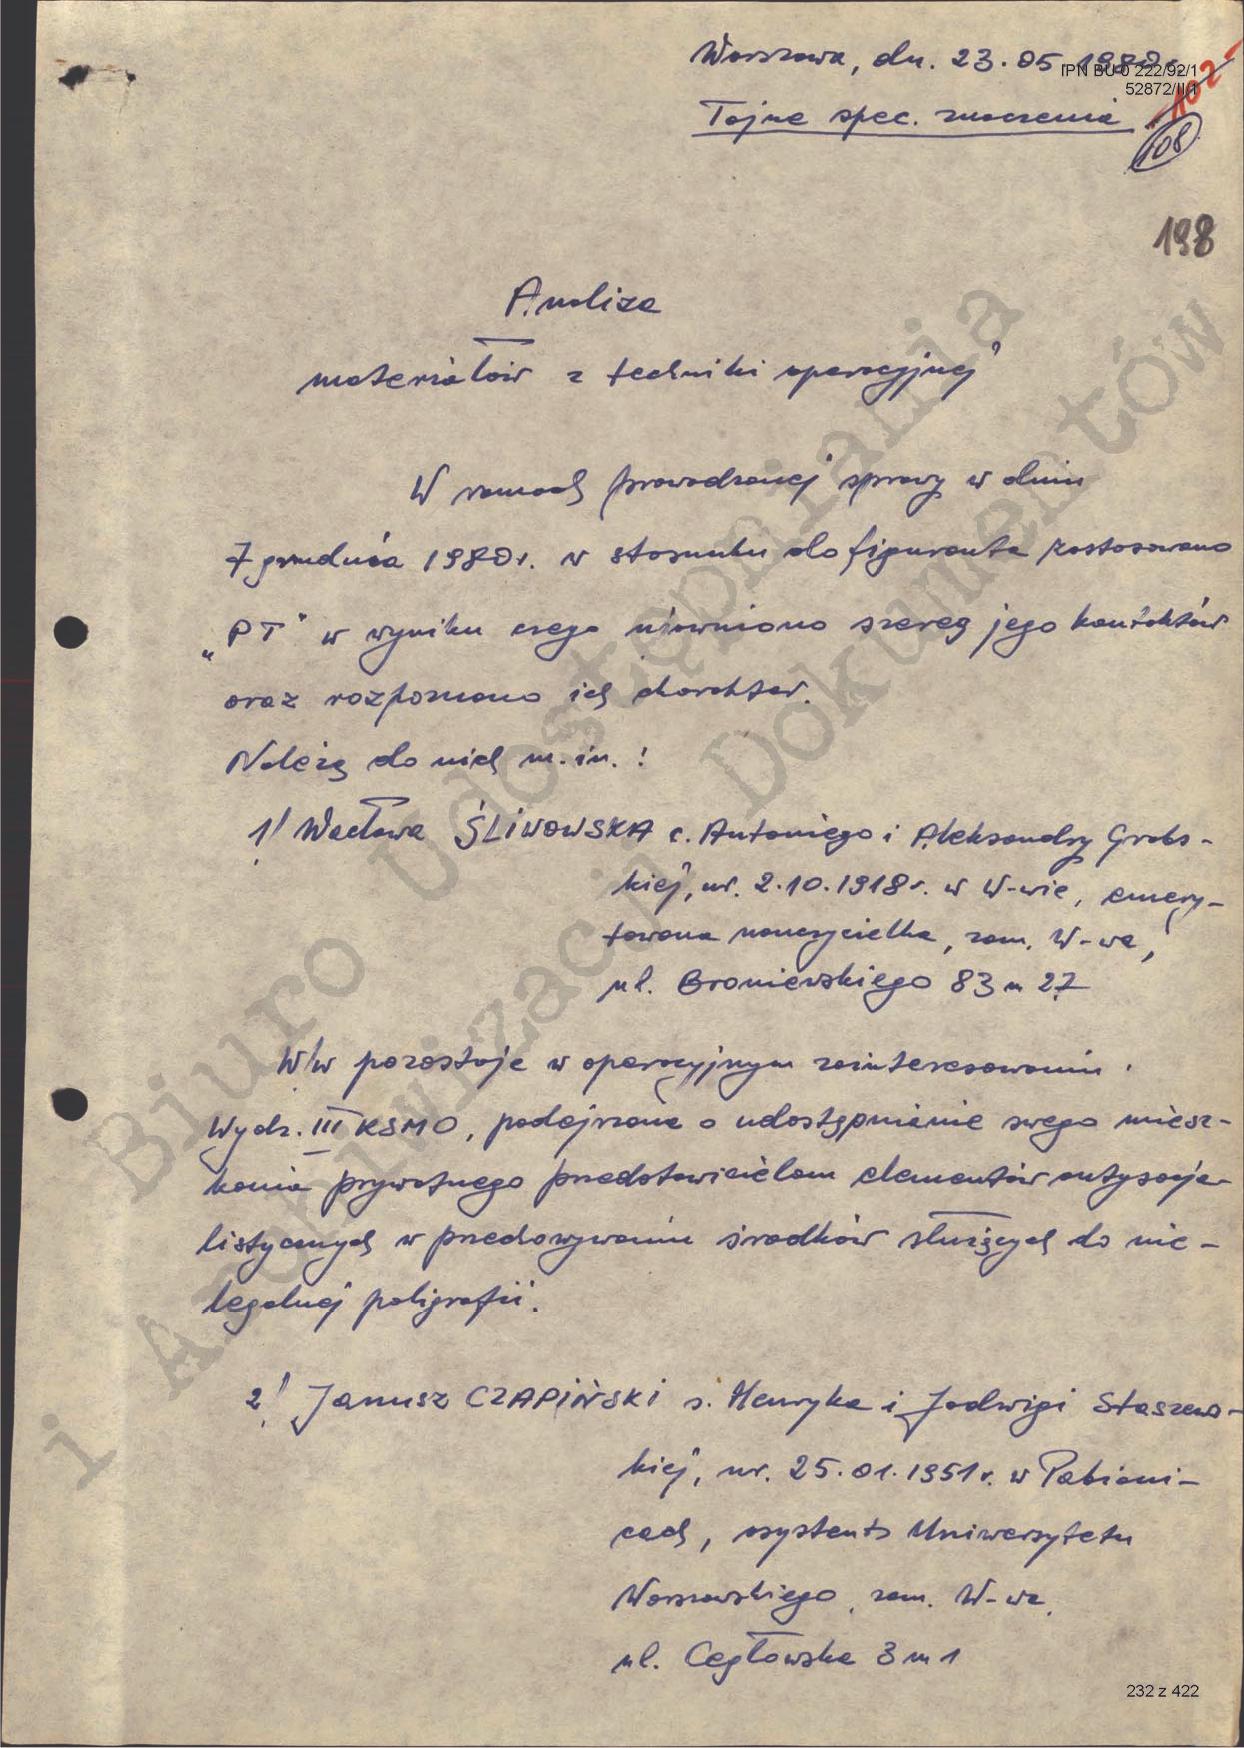 Warszawa, dn. 23.05.1980r.
IPN BU 0 222/92/1
52872/II/1
102
Tajne spec. znaczenia
108
198
Analiza
materiałów z techniki operacyjnej
W ramach prowadzonej sprawy w dniu
7 grudnia 1980r. w stosunku do figuranta zastosowano
„PT" w wyniku czego ujawniono szereg jego kontaktów
oraz rozpoznano ich charakter.
Należą do nich m.in.:
1/ Wacława ŚLIWOWSKA c. Antoniego i Aleksandry Grabs-
kiej, ur. 2.10.1918r. w W-wie, emery-
towana nauczycielka, zam. W-wa,
ul. Broniewskiego 83 m 27
W/w pozostaje w operacyjnym zainteresowaniu
Wydz. III KSMO, podejrzana o udostępnianie swego miesz-
kania prywatnego przedstawicielom elementów antysocja-
listycznych w przechowywaniu środków służących do nie-
legalnej poligrafii.
2/ Janusz CZAPIŃSKI s. Henryka i Jadwigi Staszews-
kiej, ur. 25.01.1951r. w Pabiani-
cach, asystent Uniwersytetu
Warszawskiego, zam. W-wa,
ul. Cegłowska 3 m 1
232 z 422
Biuro Udostępniania
i Archiwizacji Dokumentów